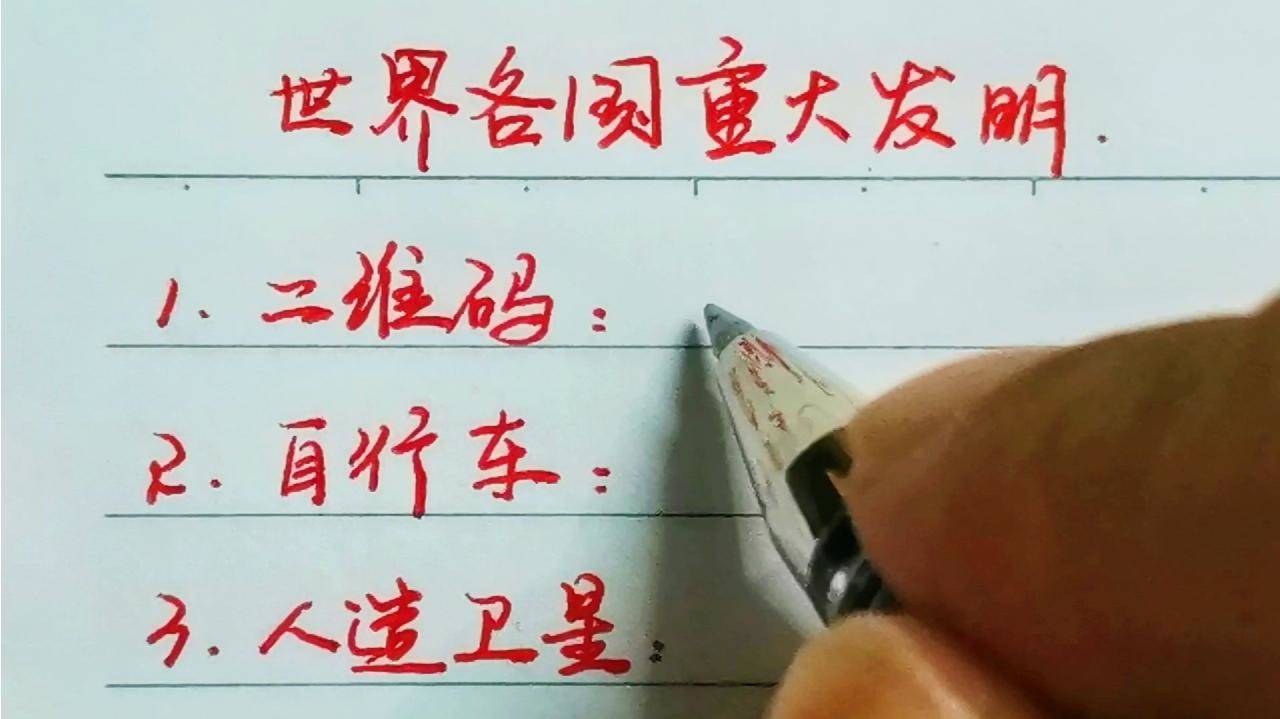 世界各国重大发明.
1. 二维码:
2. 自行车:
3. 人造卫星: